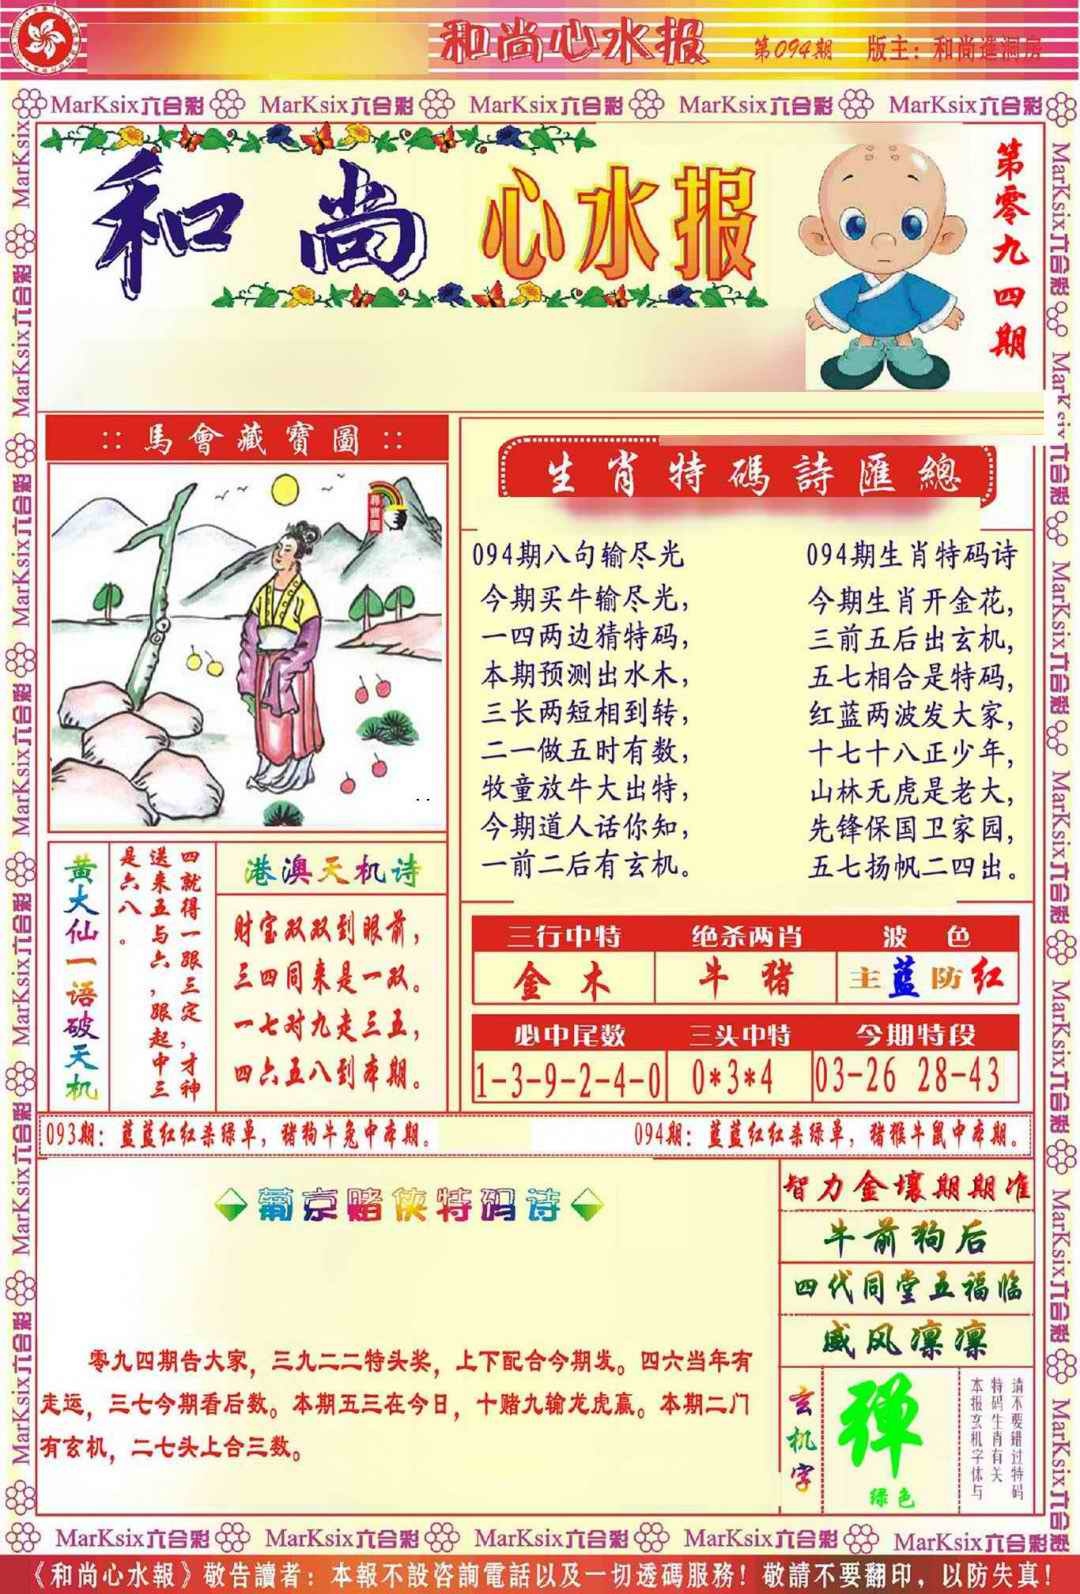 和尚心水报 第094期 版主：和尚進洞房
MarKsix六合彩 MarKsix六合彩 MarKsix六合彩 MarKsix六合彩 MarKsix六合彩
和尚 心水报
第零九四期
::馬會藏寶圖::
尋寶圖
生肖特碼詩匯總
094期八句输尽光
今期买牛输尽光，
一四两边猜特码，
本期预测出水木，
三长两短相到转，
二一做五时有数，
牧童放牛大出特，
今期道人话你知，
一前二后有玄机。
094期生肖特码诗
今期生肖开金花，
三前五后出玄机，
五七相合是特码，
红蓝两波发大家，
十七十八正少年，
山林无虎是老大，
先锋保国卫家园，
五七扬帆二四出。
黄大仙一语破天机
四就得一跟三定，才神
送来五与六，跟起中三
是六八。
港澳天机诗
财宝双双到眼前，
三四同来是一双。
一七对九走三五，
四六五八到本期。
三行中特 绝杀两肖 波色
金木 牛猪 主蓝防红
必中尾数 三头中特 今期特段
1-3-9-2-4-0 0*3*4 03-26 28-43
093期：蓝蓝红红杀绿单，猪狗牛兔中本期。
094期：蓝蓝红红杀绿单，猪猴牛鼠中本期。
葡京赌侠特码诗
零九四期告大家，三九二二特头奖，上下配合今期发。四六当年有
走运，三七今期看后数。本期五三在今日，十赌九输龙虎赢。本期二门
有玄机，二七头上合三数。
智力金壤期期准
牛前狗后
四代同堂五福临
威风凛凛
玄机字
弹
绿色
请不要错过特码
特码生肖有关
本报玄机字体与
MarKsix六合彩 MarKsix六合彩 MarKsix六合彩 MarKsix六合彩 MarKsix六合彩
《和尚心水報》敬告讀者：本報不設咨詢電話以及一切透碼服務！敬請不要翻印，以防失真！